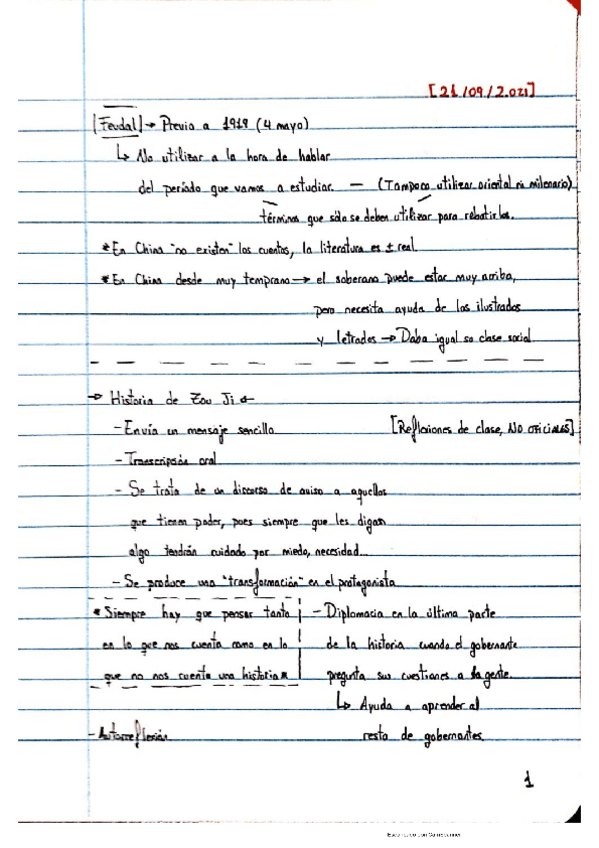 [21/09/2.021]
[Feudal] → Previo a 1919 (4 mayo)
↳ No utilizar a la hora de hablar
del período que vamos a estudiar. — (Tampoco utilizar oriental ni milenario)
términos que sólo se deben utilizar para rebatirlos.
* En China "no existen" los cuentos, la literatura es ± real
* En China desde muy temprano → el soberano puede estar muy arriba,
pero necesita ayuda de los ilustrados
y letrados → Daba igual su clase social
→ Historia de Zou Ji ←
- Envía un mensaje sencillo
[Reflexiones de clase, NO OFICIALES]
- Transcripción oral
- Se trata de un discurso de aviso a aquellos
que tienen poder, pues siempre que les digan
algo tendrán cuidado por miedo, necesidad...
- Se produce una "transformación" en el protagonista
* Siempre hay que pensar tanto
en lo que nos cuenta como en lo
que no nos cuenta una historia *
- Autorreflexión
- Diplomacia en la última parte
de la historia cuando el gobernante
pregunta sus cuestiones a la gente.
↳ Ayuda a aprender al
resto de gobernantes.
1
Escaneado con CamScanner